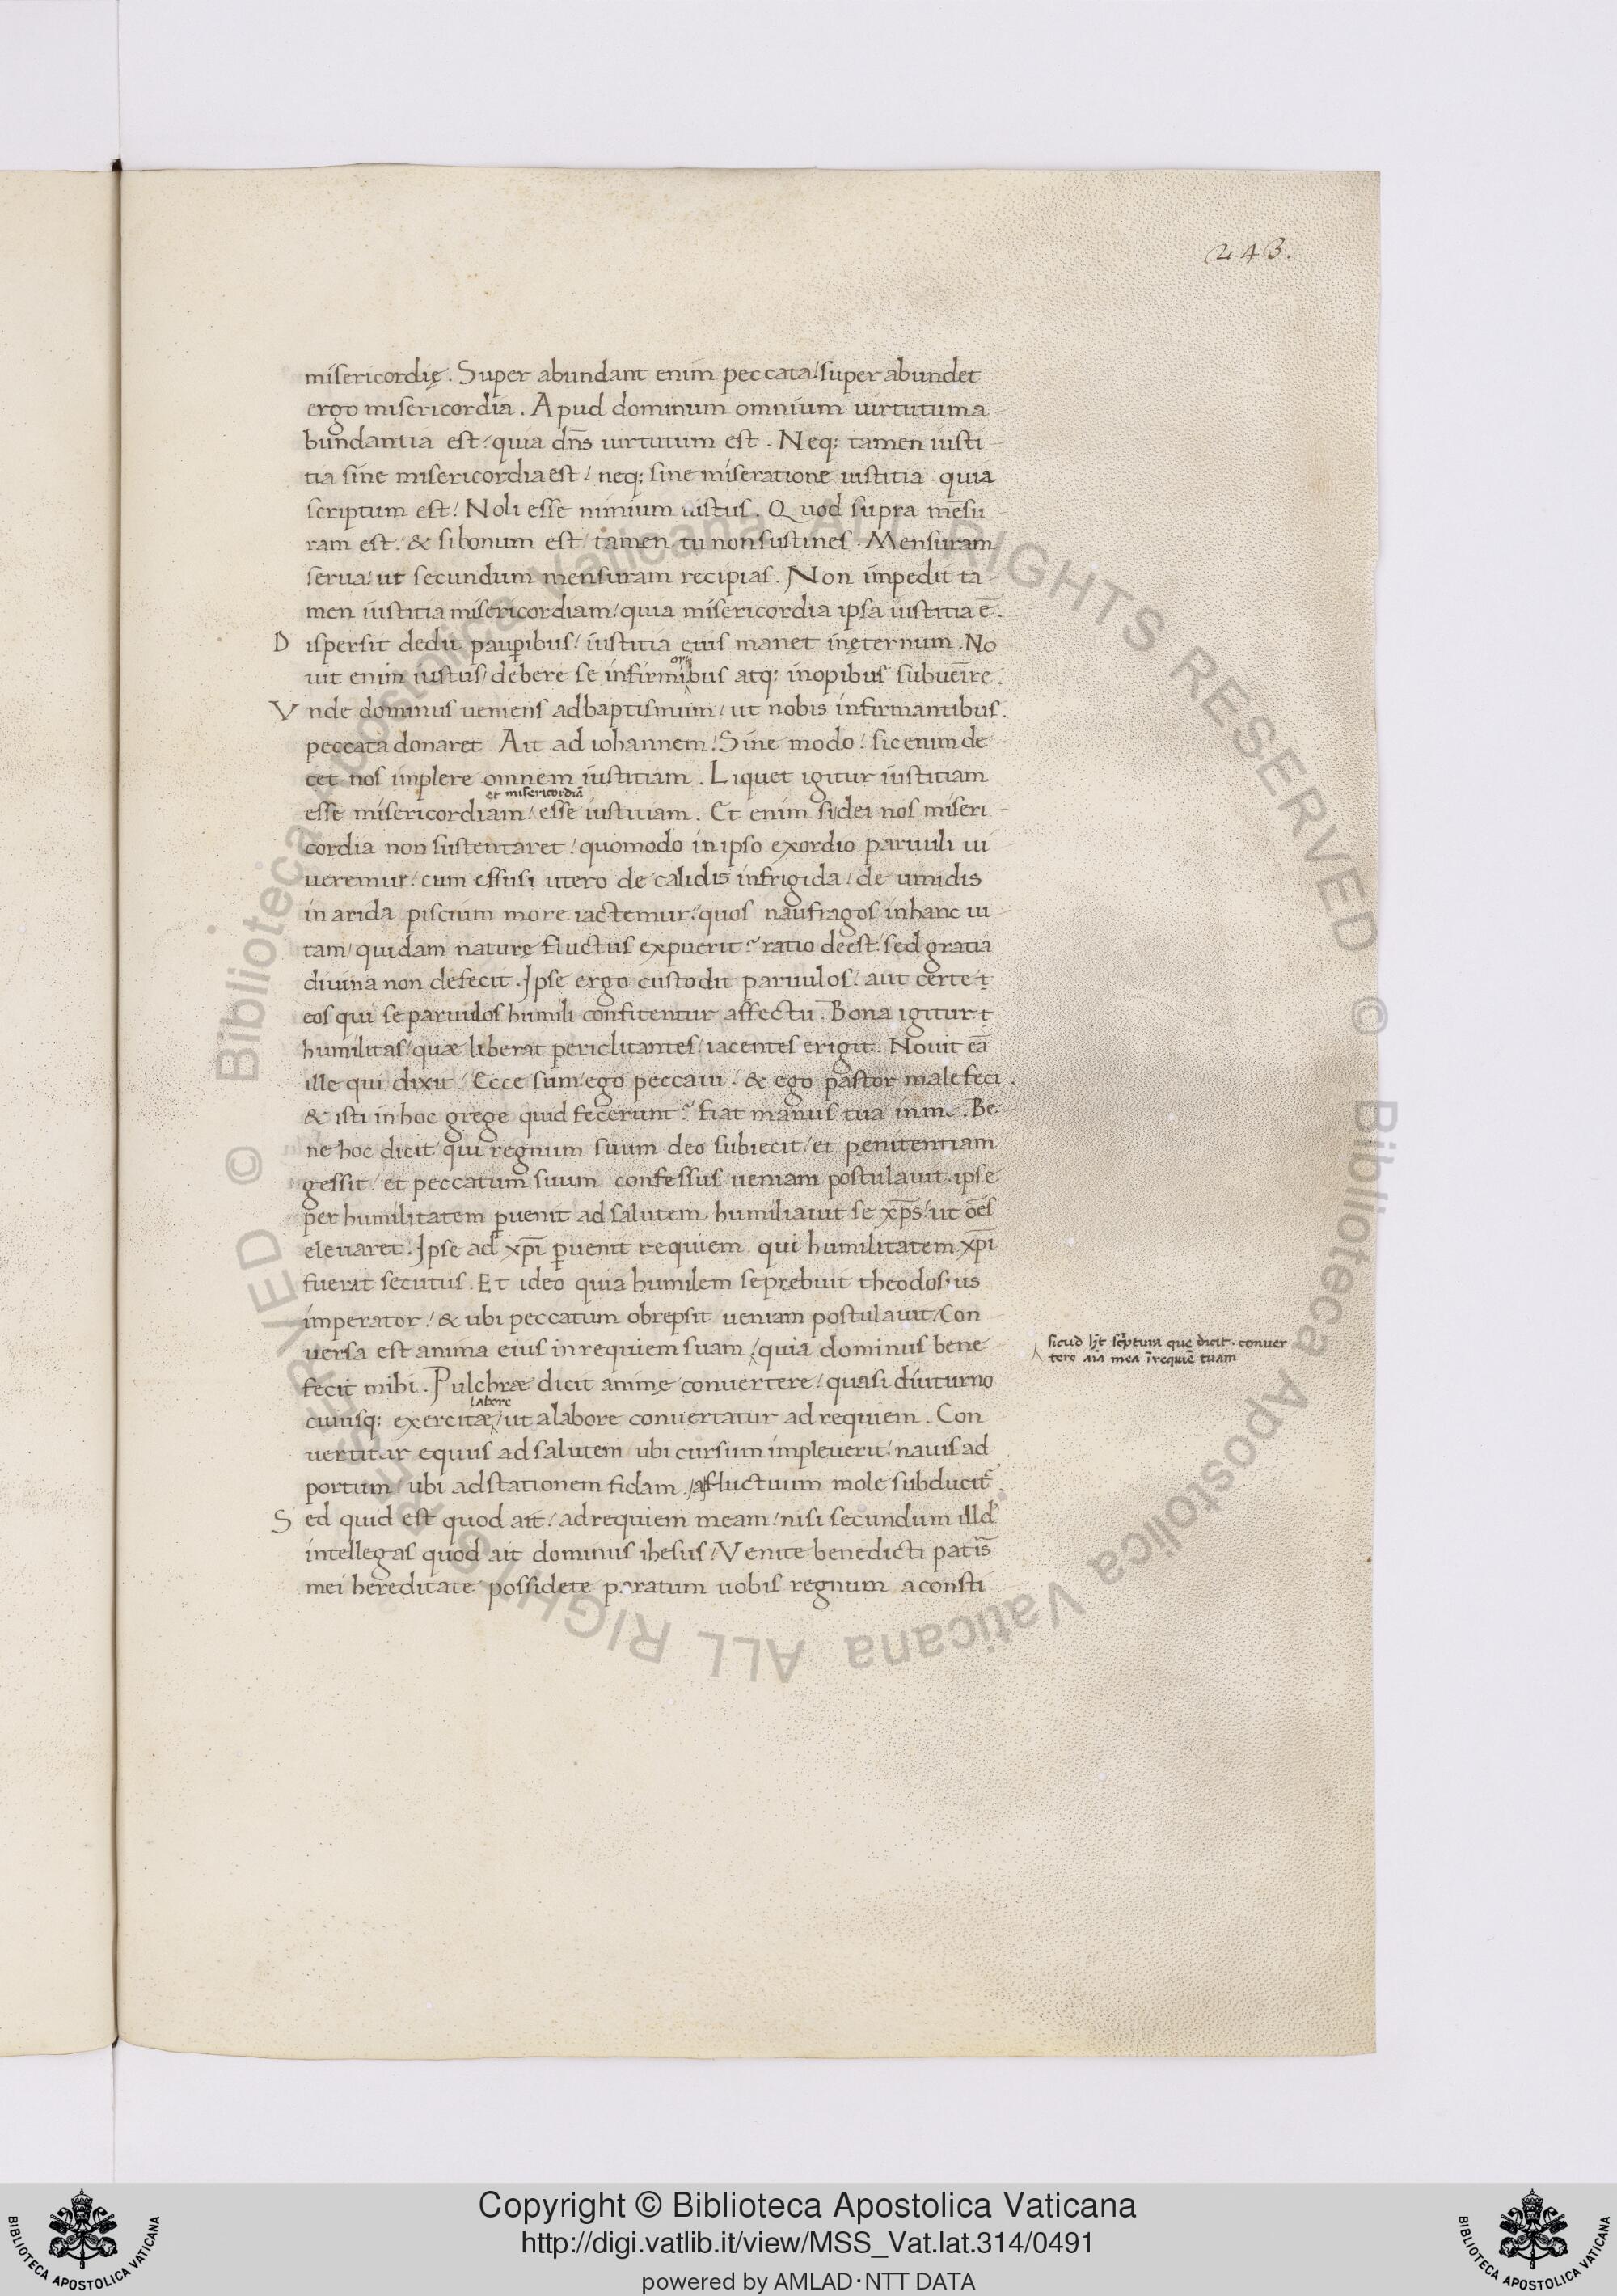 243.
misericordię. Super abundant enim peccata/ super abundet
ergo misericordia. Apud dominum omnium uirtutum a
bundantia est/ quia dn̄s uirtutum est. Neq; tamen iusti
tia sine misericordia est/ neq; sine miseratione iustitia. quia
scriptum est/ Noli esse nimium iustus. Quod supra mēsu
ram est. & si bonum est/ tamen tu non sustines. Mensuram
serua/ ut secundum mensuram recipias. Non impedit ta
men iustitia misericordiam/ quia misericordia ipsa iustitia ē.
Dispersit dedit paup̄ibus/ iustitia eius manet in ęternum. No
uit enim iustus/ debere se infirmibus atq; inopibus subuēire.
Vnde dominus ueniens ad baptismum/ ut nobis infirmantibus.
peccata donaret. Ait ad iohannem/ Sine modo/ sic enim de
cet nos implere omnem iustitiam. Liquet igitur iustitiam
et misericordiā
esse misericordiam/ esse iustitiam. Et enim si dei nos miseri
cordia non sustentaret/ quomodo in ipso exordio paruuli ui
ueremur/ cum effusi utero de calidis in frigida/ de umidis
in arida piscium more iactemur/ quos naufragos in hanc ui
tam/ quidam naturę fluctus expuerit? ratio deest. sed gratia
diuina non defecit. Ipse ergo custodit paruulos/ aut certe
eos qui se paruulos humili confitentur affectu. Bona igitur
humilitas/ quæ liberat periclitantes/ iacentes erigit. Nouit eā
ille qui dixit/ Ecce sum ego peccaui. & ego pastor male feci.
& isti in hoc grege quid fecerunt? fiat manus tua in me. Be
ne hoc dicit/ qui regnum suum deo subiecit/ et penitentiam
gessit/ et peccatum suum confessus ueniam postulauit. ipse
per humilitatem p̱uenit ad salutem. humiliauit se xp̄s/ ut oēs
eleuaret. Ipse ad xp̄i p̱uenit requiem. qui humilitatem xp̄i
fuerat secutus. Et ideo quia humilem se prebuit theodosius
imperator/ & ubi peccatum obrepsit ueniam postulauit/ Con
uersa est anima eius in requiem suam/ quia dominus bene
sicud ht̄ scrp̄tura que dicit. conuer
tere aīa mea ī requiē tuam
fecit mihi. Pulchræ dicit animę conuertere/ quasi diuturno
labore
cuiusq; exercitæ/ ut a labore conuertatur ad requiem. Con
uertitur equus ad salutem/ ubi cursum impleuerit/ nauis ad
portum/ ubi ad stationem fidam/ a fluctuum mole subducit̄.
Sed quid est quod ait/ ad requiem meam/ nisi secundum illd̄
intellegas quod ait dominus ihesus/ Venite benedicti patīs
mei hereditate possidete paratum uobis regnum a consti
Copyright © Biblioteca Apostolica Vaticana
http://digi.vatlib.it/view/MSS_Vat.lat.314/0491
powered by AMLAD·NTT DATA
BIBLIOTECA APOSTOLICA VATICANA
BIBLIOTECA APOSTOLICA VATICANA
© Biblioteca Apostolica Vaticana ALL RIGHTS RESERVED
© Biblioteca Apostolica Vaticana ALL RIGHTS RESERVED